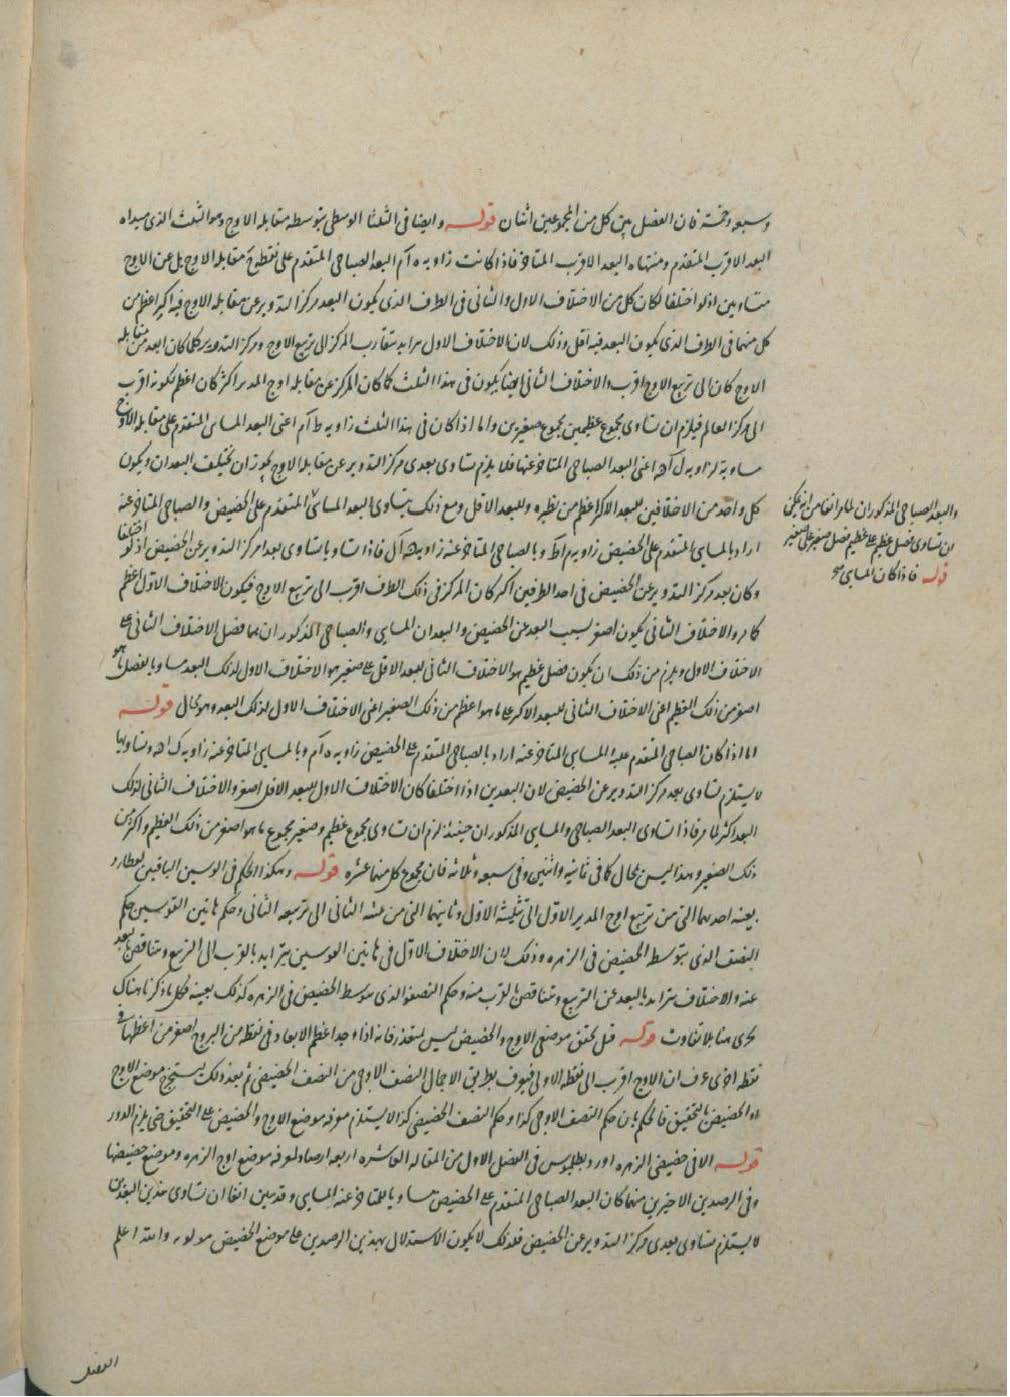 وسبعه وخمسة فان الفضل بين كل من المجموعين اثنان قوله وايضا فى الثلث الاوسطى بتوسطه مقابله الاوج وهو الثلث الذى مبداه
البعد الاقرب المتقدم ومنتهاه البعد الاقرب المتاخر فاذا كانت زاويه ه آم البعد الصباحى المتقدم على نقطه مقابله الاوج بل عن الاوج
متساويين اذ لو اختلفا لكان كل من الاختلاف الاول والثانى فى الطرف الذى يكون البعد مركز التدوير عن مقابله الاوج فيه اكبر اعظم من
كل منهما فى الطرف الذى يكون البعد فيه اقل وذلك لان الاختلاف الاول يتزايد بتقارب المركز الى تربيع الاوج ومركز التدوير كلما كان ابعد من مقابله
الاوج كان الى تربيع الاوج اقرب والاختلاف الثانى ايضا يكون فى هذا الثلث كلما كان المركز عن مقابله اوج المدير اكثر كان اعظم لكونه اقرب
الى مركز العالم فيلزم ان تساوى مجموع عظيمين مجموع صغيرين واما اذا كان فى هذا الثلث زاويه ط آم اعنى البعد المسائى المتقدم على مقابله الاوج
مساويه لزاويه ل آه اعنى البعد الصباحى المتاخر عنها فلا يلزم تساوى بعدى مركز التدوير عن مقابله الاوج لجواز ان يختلف البعدان ويكون
كل واحد من الاختلافين للبعد الاكثر اعظم من نظيره وللبعد الاقل ومع ذلك يتساوى البعد المسائى المتقدم على الحضيض والصباحى المتاخر عنه
اراد بالمسايى المتقدم على الحضيض زاويه م آك وبالصباحى المتاخر عنه زاويه ه آل فاذا تساويا تساوى بعدا مركز التدوير عن الحضيض اذ لو اختلفا
وكان بعد مركز التدوير عن الحضيض فى احد الطرفين اكثر كان المركز فى ذلك الطرف اقرب الى تربيع الاوج فيكون الاختلاف الاول اعظم
كما مر والاختلاف الثانى يكون اصغر بسبب البعد عن الحضيض والبعدان المسايى والصباحى المذكوران هما فضل الاختلاف الثانى على
الاختلاف الاول ويلزم من ذلك ان يكون فضل عظيم هو الاختلاف الثانى للبعد الاقل على صغير هو الاختلاف الاول لذلك البعد مساويا لفضل ما هو
اصغر من ذلك العظيم اعنى الاختلاف الثانى للبعد الاكثر على ما هو اعظم من ذلك الصغير اعنى الاختلاف الاول لذلك البعد وهو محال قوله
اما اذا كان الصباحى المتقدم عليه المسايى المتاخر عنه اراد بالصباحى المتقدم على الحضيض زاويه ه آم وبالمسايى المتاخر عنه زاويه ك آه وتساويهما
لا يستلزم تساوى بعد مركز التدوير عن الحضيض لان البعدين اذا اختلفا كان الاختلاف الاول للبعد الاقل اصغر والاختلاف الثانى لذلك
البعد اكثر لما مر فاذا تساوى البعد الصباحى والمسايى المذكوران حينئذ لزم ان تساوى مجموع عظيم وصغير مجموع ما هو اصغر من ذلك العظيم واكبر من
ذلك الصغير وهذا ليس بمحال كما فى ثمانيه واثنين وفى سبعه وثلاثه فان مجموع كل منهما عشره قوله وهكذا الحكم فى القوسين الباقيين لعطارد
بعينه احدهما التى من تربيع اوج المدير الاول الى تثليثه الاول وثانيهما التى من تثليثه الثانى الى تربيعه الثانى وحكم هاتين القوسين حكم
النصف الذى يتوسط الحضيض فى الزهره وذلك لان الاختلاف الاول فى هاتين القوسين يتزايد بالقرب الى التربيع ويتناقص بالبعد
عنه والاختلاف يتزايد بالبعد عن التربيع ويتناقص بالقرب منه وحكم النصف الذى يتوسط الحضيض فى الزهره كذلك بعينه فكل ما ذكرنا هناك
يجرى هنا بلا تفاوت قوله قبل تحقق موضعى الاوج والحضيض ليس بمتعذر فانه اذا وجد اعظم الابعاد فى نقطه من البروج اصغر من اعظمها فى
نقطه اخرى عرف ان الاوج اقرب الى نقطه الاولى فيعرف بطريق الاجمال النصف الاوجى من النصف الحضيضى ثم بعد ذلك يستخرج موضع الاوج
والحضيض بالتحقيق فالحكم بان حكم النصف الاوجى كذا وحكم النصف الحضيضى كذا لا يستلزم معرفه موضع الاوج والحضيض على التحقيق حتى يلزم الدور
قوله الا فى حضيض الزهره اورد بطلميوس فى الفصل الاول من المقاله العاشره اربعه ارصاد لمعرفه موضع اوج الزهره وموضع حضيضها
وفى الرصدين الاخيرين منهما كان البعد الصباحى المتقدم على الحضيض مساويا للمتاخر عنه المسايى وقد تبين انفا ان تساوى هذين البعدين
لا يستلزم تساوى بعدى مركز التدوير عن الحضيض فلذلك لا يكون الاستدلال بهذين الرصدين على موضع الحضيض والله اعلم
والبعد الصباحى المذكوران
ان تساوى فضل عظيم على عظيم فضل صغير على صغير
قوله فاذا كان المسايى
الفصل